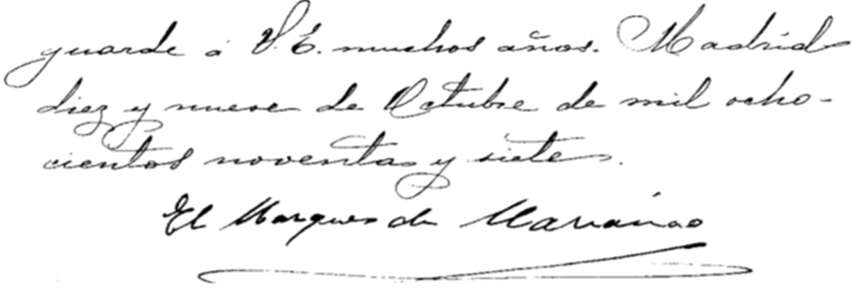 guarde á V.E. muchos años. Madrid
diez y nueve de Octubre de mil ocho-
cientos noventa y siete.
El Marques de Marianao